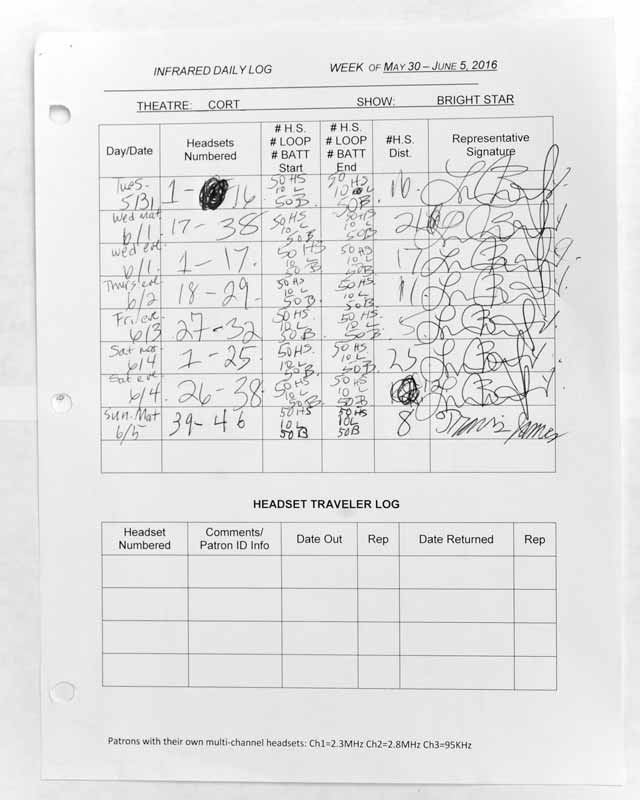 INFRARED DAILY LOG WEEK OF MAY 30 – JUNE 5, 2016
THEATRE: CORT SHOW: BRIGHT STAR
Day/Date
Headsets
Numbered
# H.S.
# LOOP
# BATT
Start
# H.S.
# LOOP
# BATT
End
#H.S.
Dist.
Representative
Signature
Tues.
5/31
1 - 16
50 HS
10 L
50 B.
50 HS
10 L
50 B.
16
Wed Mat
6/1
17 - 38
50 HS
10 L
50 B
50 HS
10 L
50 B
Wed eve
6/1
1 - 17.
50 HS
10 L
50 B
50 HS
10 L
50 B
17
Thurs eve
6/2
18 - 29.
50 HS
10 L
50 B
50 HS
10 L
50 B.
11
Fri/eve
6/3
27 - 32
50 HS.
10 L
50 B.
50 HS.
10 L
50 B.
5
Sat mat
6/4
1 - 25
50 HS
10 L
50 B.
50 HS
10 L
50 B.
25
Sat eve
6/4
26 - 38
50 HS
10 L
50 B
50 HS
10 L
50 B
Sun. Mat
6/5
39 - 46
50 HS
10 L
50 B
50 HS
10 L
50 B
8
Travis James
HEADSET TRAVELER LOG
Headset
Numbered
Comments/
Patron ID Info
Date Out
Rep
Date Returned
Rep
Patrons with their own multi-channel headsets: Ch1=2.3MHz Ch2=2.8MHz Ch3=95KHz